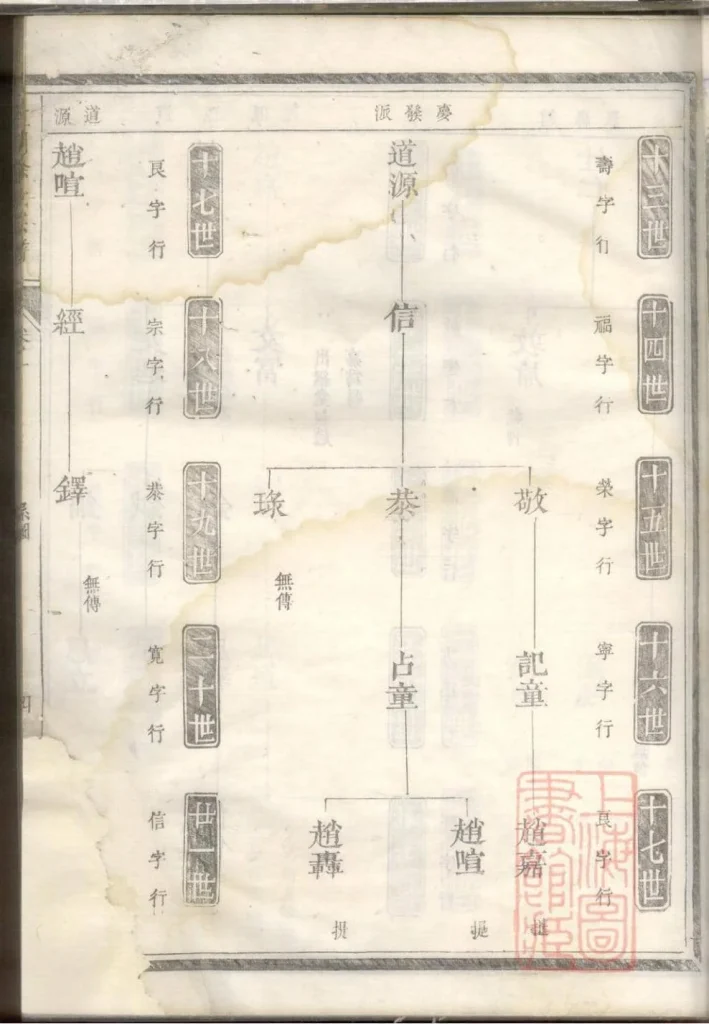 慶發派
十三世
壽字行
道源
十四世
福字行
信
十五世
榮字行
敬
恭
琭
無傳
十六世
寧字行
記童
占童
十七世
良字行
趙嘉
趙喧
趙轟
道源
十七世
良字行
趙喧
十八世
宗字行
經
十九世
恭字行
鐸
無傳
二十世
寬字行
廿一世
信字行
系圖
四
上海圖書館藏